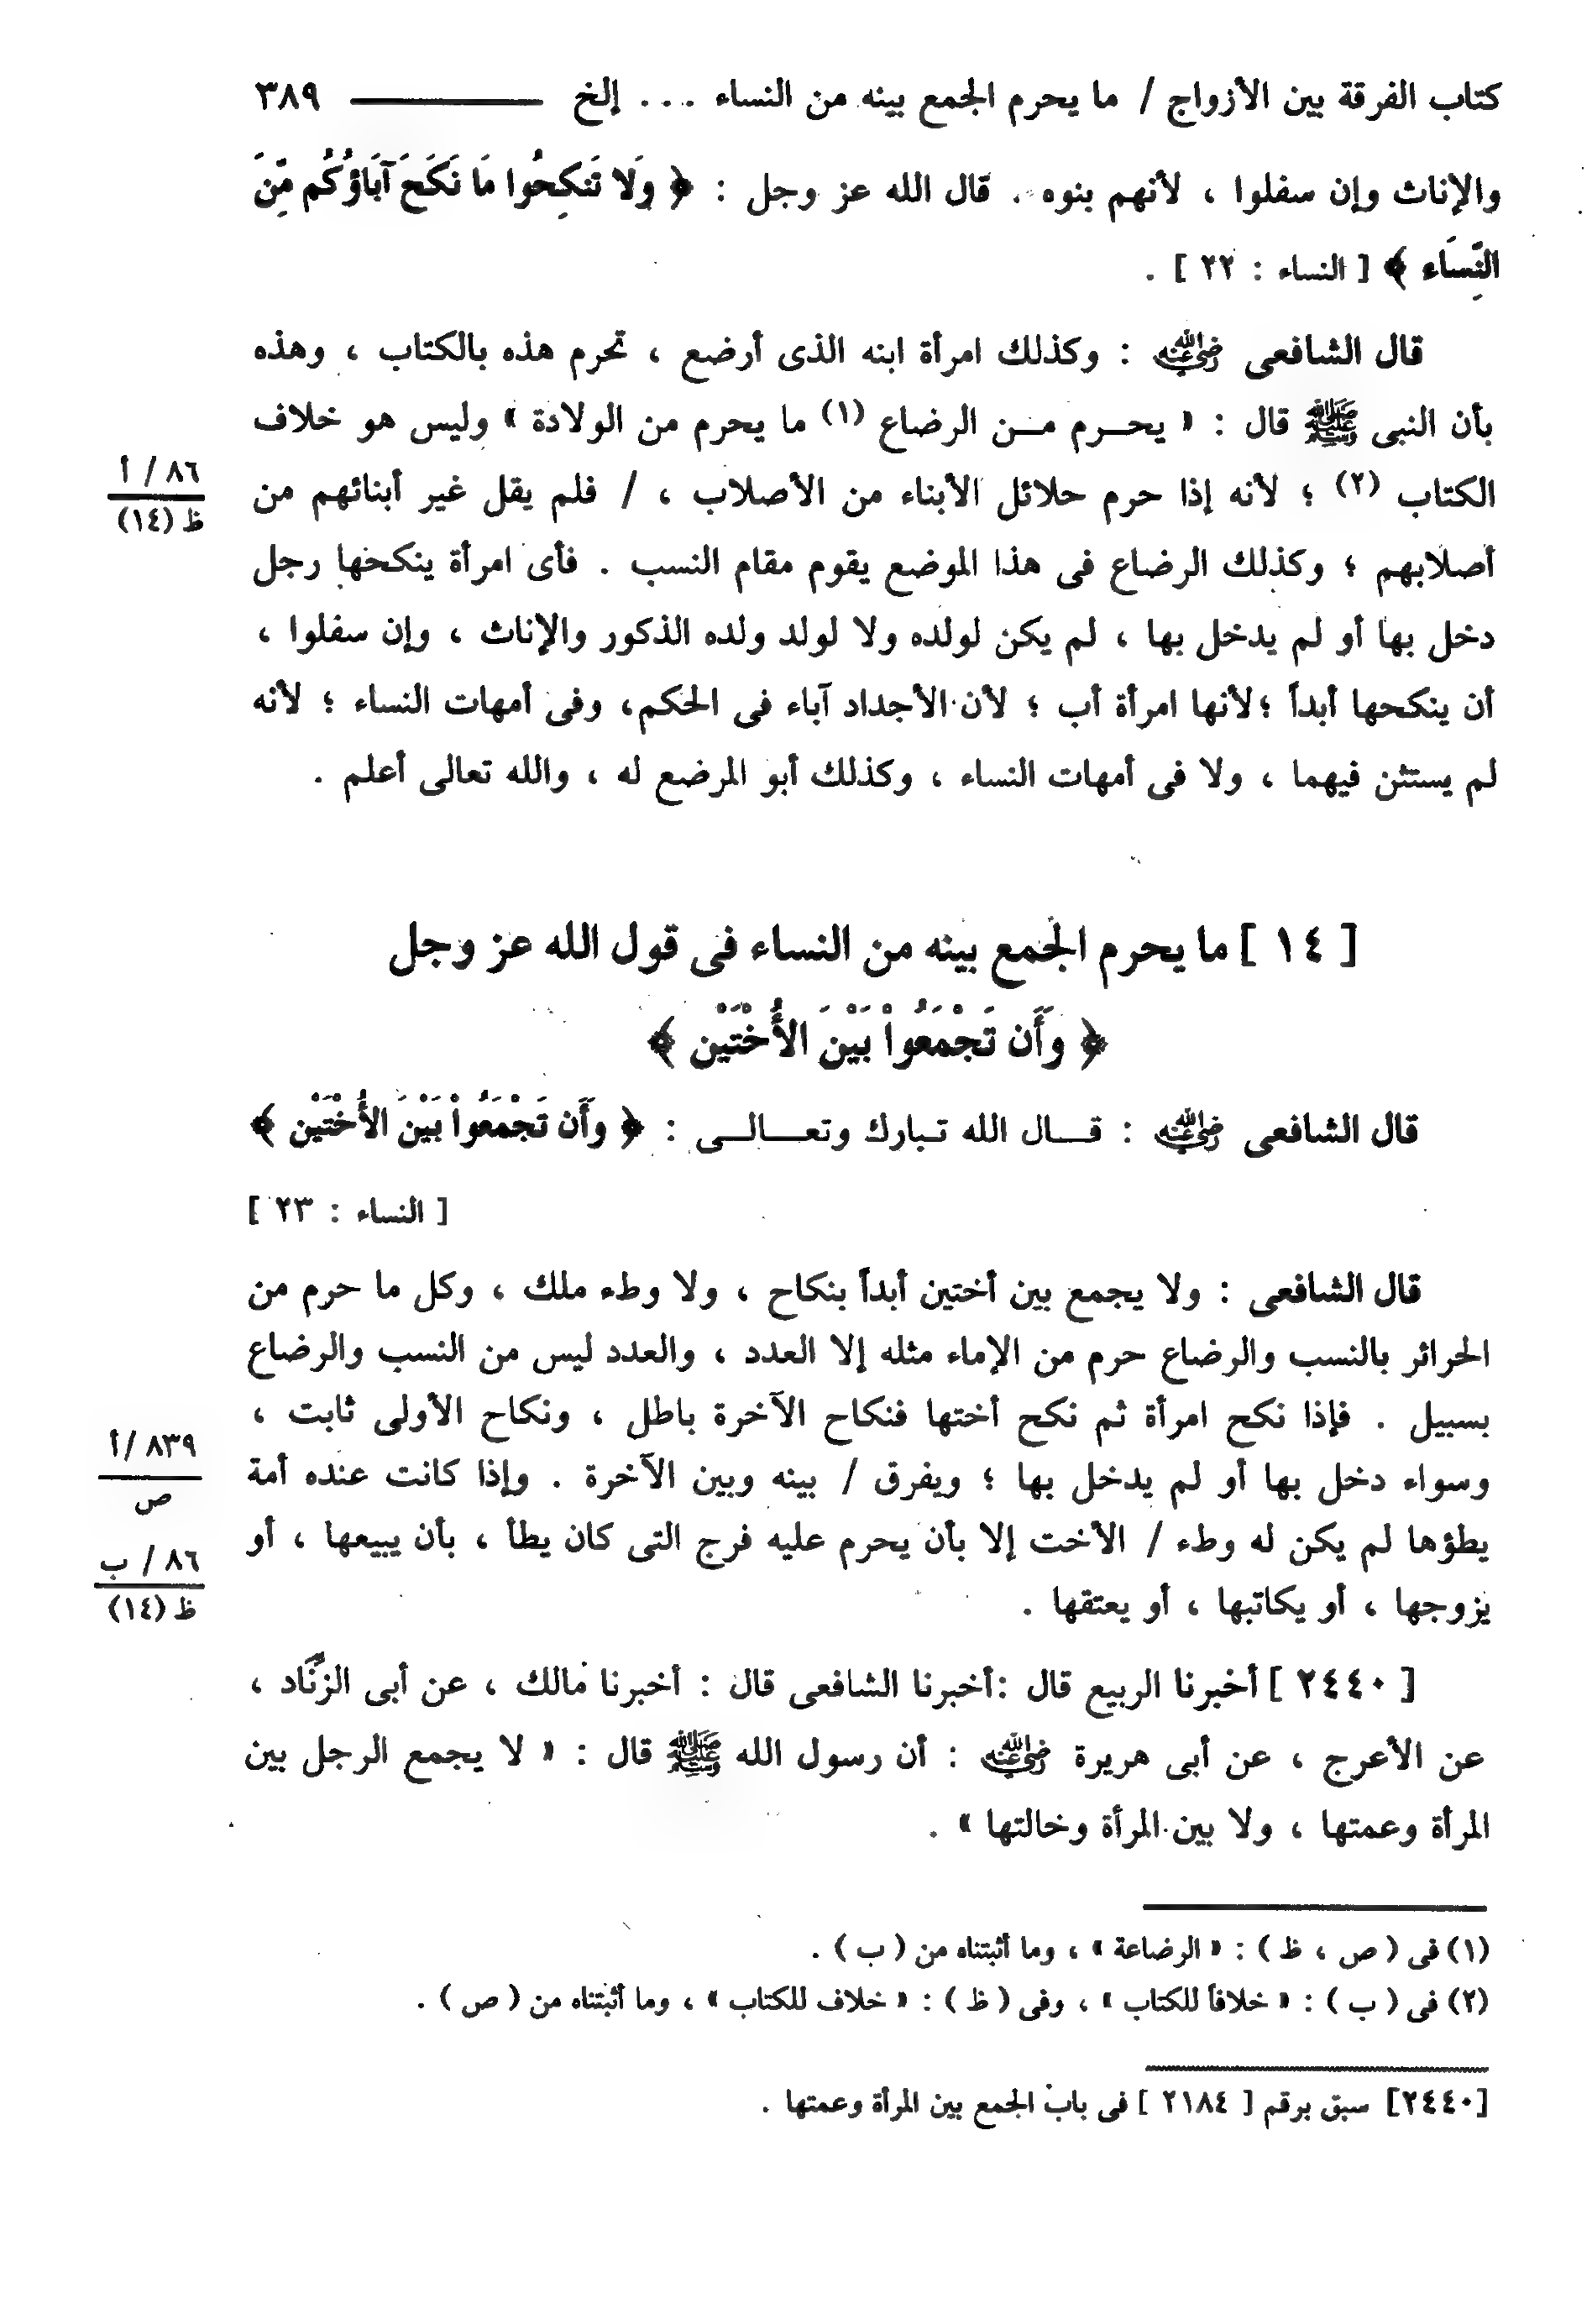 كتاب الفرقة بين الأزواج / ما يحرم الجمع بينه من النساء . . . إلخ ٣٨٩
والإناث وإن سفلوا ، لأنهم بنوه . قال الله عز وجل : ﴿ وَلا تَنكِحُوا مَا نَكَحَ آبَاؤُكُم مِّنَ
النِّسَاء ﴾ [ النساء : ٢٢ ] .
قال الشافعى رضي الله عنه : وكذلك امرأة ابنه الذى أرضع ، تحرم هذه بالكتاب ، وهذه
بأن النبى ﷺ قال : « يحـرم مـن الرضاع (١) ما يحرم من الولادة » وليس هو خلاف
الكتاب (٢) ؛ لأنه إذا حرم حلائل الأبناء من الأصلاب ، / فلم يقل غير أبنائهم من
٨٦ / أ
ظ (١٤)
أصلابهم ؛ وكذلك الرضاع فى هذا الموضع يقوم مقام النسب . فأى امرأة ينكحها رجل
دخل بها أو لم يدخل بها ، لم يكن لولده ولا لولد ولده الذكور والإناث ، وإن سفلوا ،
أن ينكحها أبداً ؛لأنها امرأة أب ؛ لأن الأجداد آباء فى الحكم، وفى أمهات النساء ؛ لأنه
لم يستثن فيهما ، ولا فى أمهات النساء ، وكذلك أبو المرضع له ، والله تعالى أعلم .
[ ١٤ ] ما يحرم الجمع بينه من النساء فى قول الله عز وجل
﴿ وَأَن تَجْمَعُواْ بَيْنَ الأُخْتَيْنِ ﴾
قال الشافعى رضي الله عنه : قـال الله تبارك وتعـالـى : ﴿ وَأَن تَجْمَعُواْ بَيْنَ الأُخْتَيْنِ ﴾
[ النساء : ٢٣ ]
قال الشافعى : ولا يجمع بين أختين أبداً بنكاح ، ولا وطء ملك ، وكل ما حرم من
الحرائر بالنسب والرضاع حرم من الإماء مثله إلا العدد ، والعدد ليس من النسب والرضاع
بسبيل . فإذا نكح امرأة ثم نكح أختها فنكاح الآخرة باطل ، ونكاح الأولى ثابت ،
وسواء دخل بها أو لم يدخل بها ؛ ويفرق / بينه وبين الآخرة . وإذا كانت عنده أمة
٨٣٩ /أ
ص
يطؤها لم يكن له وطء / الأخت إلا بأن يحرم عليه فرج التى كان يطأ ، بأن يبيعها ، أو
٨٦ / ب
ظ (١٤)
يزوجها ، أو يكاتبها ، أو يعتقها .
[ ٢٤٤٠ ] أخبرنا الربيع قال :أخبرنا الشافعى قال : أخبرنا مالك ، عن أبى الزِّنَاد ،
عن الأعرج ، عن أبى هريرة رضي الله عنه : أن رسول الله ﷺ قال : « لا يجمع الرجل بين
المرأة وعمتها ، ولا بين المرأة وخالتها » .
(١) فى ( ص ، ظ ) : « الرضاعة » ، وما أثبتناه من ( ب ) .
(٢) فى ( ب ) : « خلافاً للكتاب » ، وفى ( ظ ) : « خلاف للكتاب » ، وما أثبتناه من ( ص ) .
[٢٤٤٠] سبق برقم [ ٢١٨٤ ] فى باب الجمع بين المرأة وعمتها .